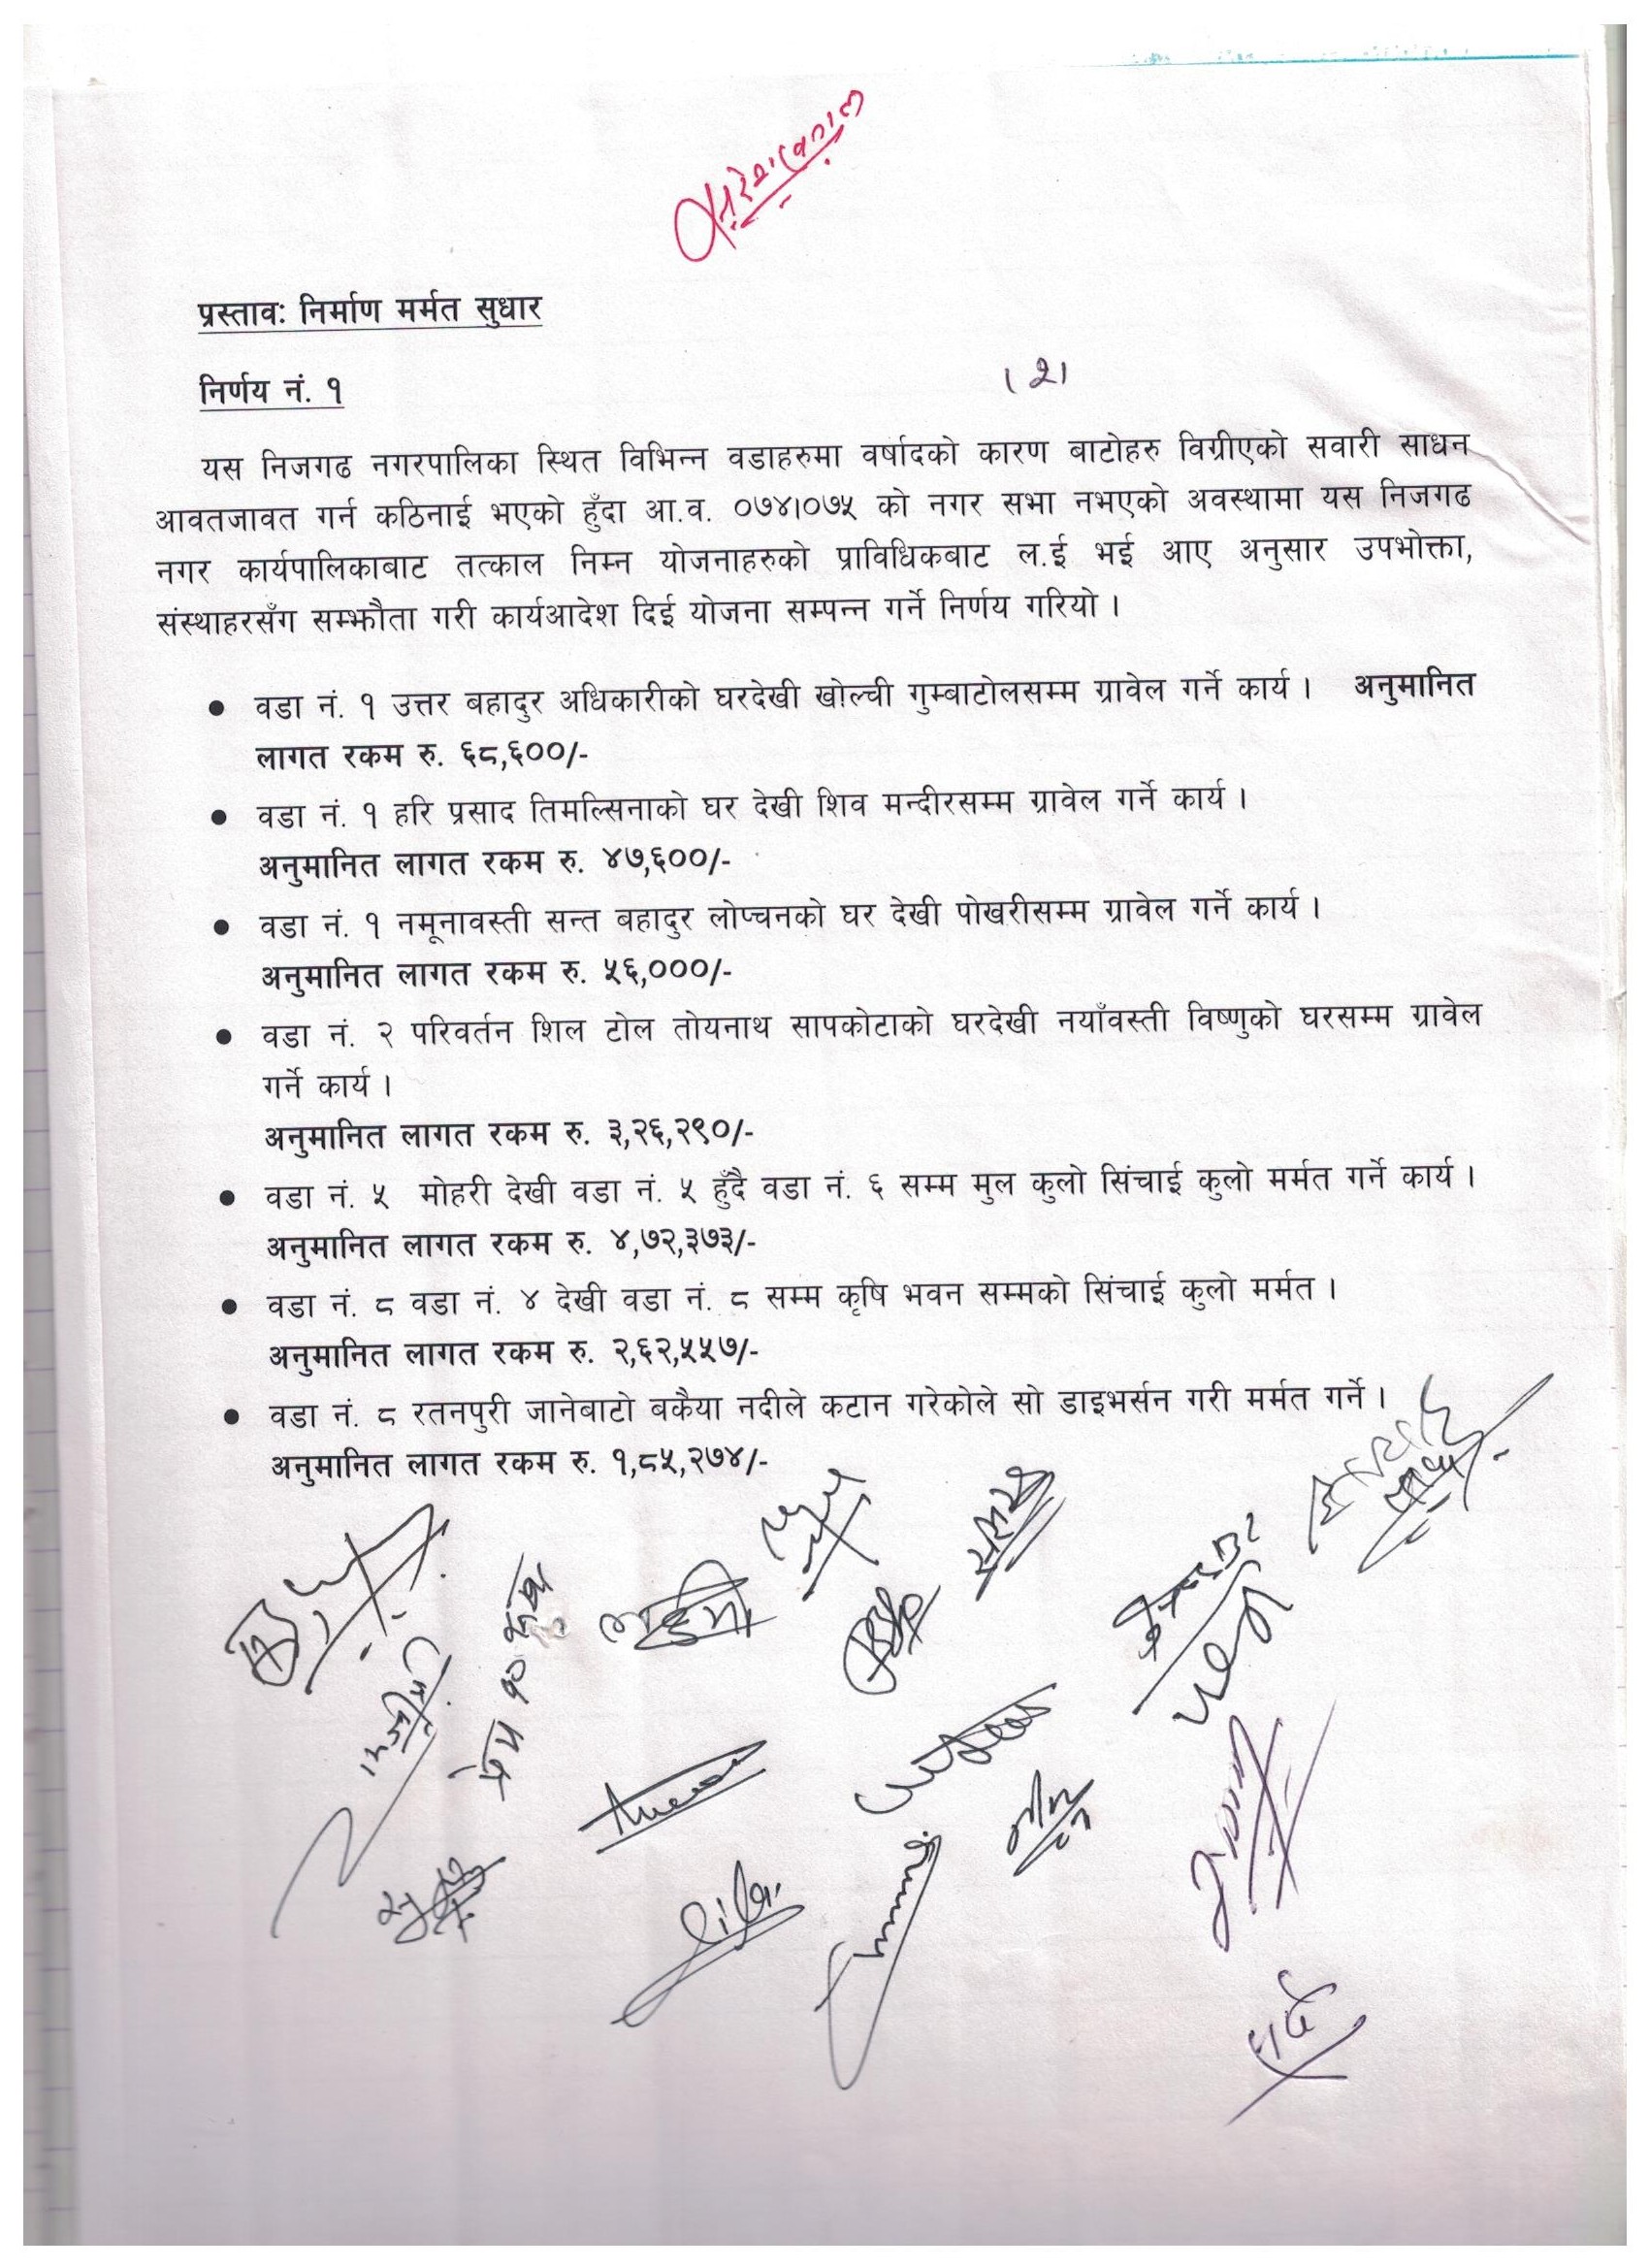 प्रस्तावः निर्माण मर्मत सुधार
निर्णय नं. १
।२।
यस निजगढ नगरपालिका स्थित विभिन्न वडाहरुमा वर्षादको कारण बाटोहरु विग्रीएको सवारी साधन
आवतजावत गर्न कठिनाई भएको हुँदा आ.व. ०७४।०७५ को नगर सभा नभएको अवस्थामा यस निजगढ
नगर कार्यपालिकाबाट तत्काल निम्न योजनाहरुको प्राविधिकबाट ल.ई भई आए अनुसार उपभोक्ता,
संस्थाहरसँग सम्झौता गरी कार्यआदेश दिई योजना सम्पन्न गर्ने निर्णय गरियो ।
• वडा नं. १ उत्तर बहादुर अधिकारीको घरदेखी खोल्ची गुम्बाटोलसम्म ग्रावेल गर्ने कार्य । अनुमानित
लागत रकम रु. ६८,६००/-
• वडा नं. १ हरि प्रसाद तिमल्सिनाको घर देखी शिव मन्दीरसम्म ग्रावेल गर्ने कार्य ।
अनुमानित लागत रकम रु. ४७,६००/-
• वडा नं. १ नमूनावस्ती सन्त बहादुर लोप्चनको घर देखी पोखरीसम्म ग्रावेल गर्ने कार्य ।
अनुमानित लागत रकम रु. ५६,०००/-
• वडा नं. २ परिवर्तन शिल टोल तोयनाथ सापकोटाको घरदेखी नयाँवस्ती विष्णुको घरसम्म ग्रावेल
गर्ने कार्य ।
अनुमानित लागत रकम रु. ३,२६,२९०/-
• वडा नं. ५ मोहरी देखी वडा नं. ५ हुँदै वडा नं. ६ सम्म मुल कुलो सिंचाई कुलो मर्मत गर्ने कार्य ।
अनुमानित लागत रकम रु. ४,७२,३७३/-
• वडा नं. ८ वडा नं. ४ देखी वडा नं. ८ सम्म कृषि भवन सम्मको सिंचाई कुलो मर्मत ।
अनुमानित लागत रकम रु. २,६२,५५७/-
• वडा नं. ८ रतनपुरी जानेबाटो बकैया नदीले कटान गरेकोले सो डाइभर्सन गरी मर्मत गर्ने ।
अनुमानित लागत रकम रु. १,८५,२७४/-